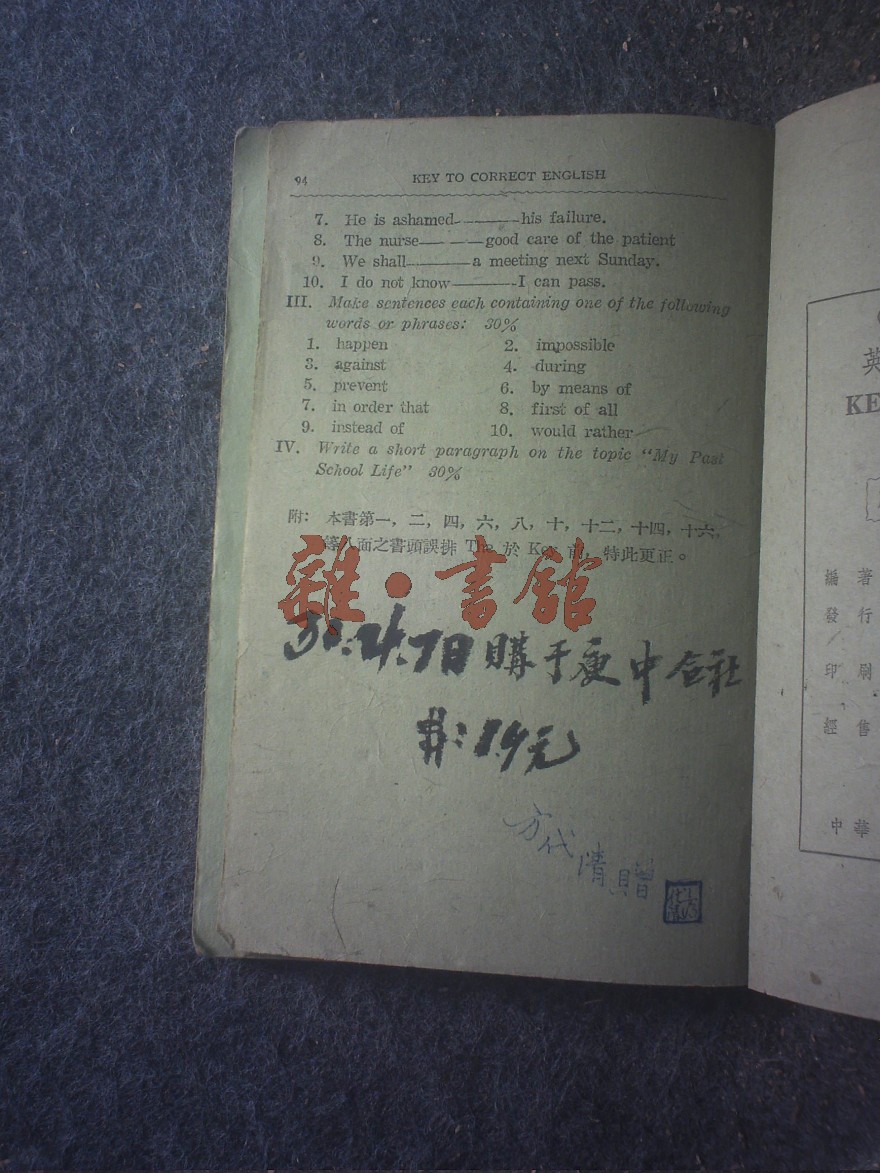 94 KEY TO CORRECT ENGLISH
7. He is ashamed ———his failure.
8. The nurse———good care of the patient
9. We shall———a meeting next Sunday.
10. I do not know———I can pass.
III. Make sentences each containing one of the following
words or phrases: 30%
1. happen 2. impossible
3. against 4. during
5. prevent 6. by means of
7. in order that 8. first of all
9. instead of 10. would rather
IV. Write a short paragraph on the topic "My Past
School Life" 30%
附: 本書第一, 二, 四, 六, 八, 十, 十二, 十四, 十六,
等八面之書頭誤排 The 於 Key 前, 特此更正。
雜·書館
4.7日購于 中合社
元
方代清贈
英
KE
編 著
發 行
印 刷
經 售
中 華